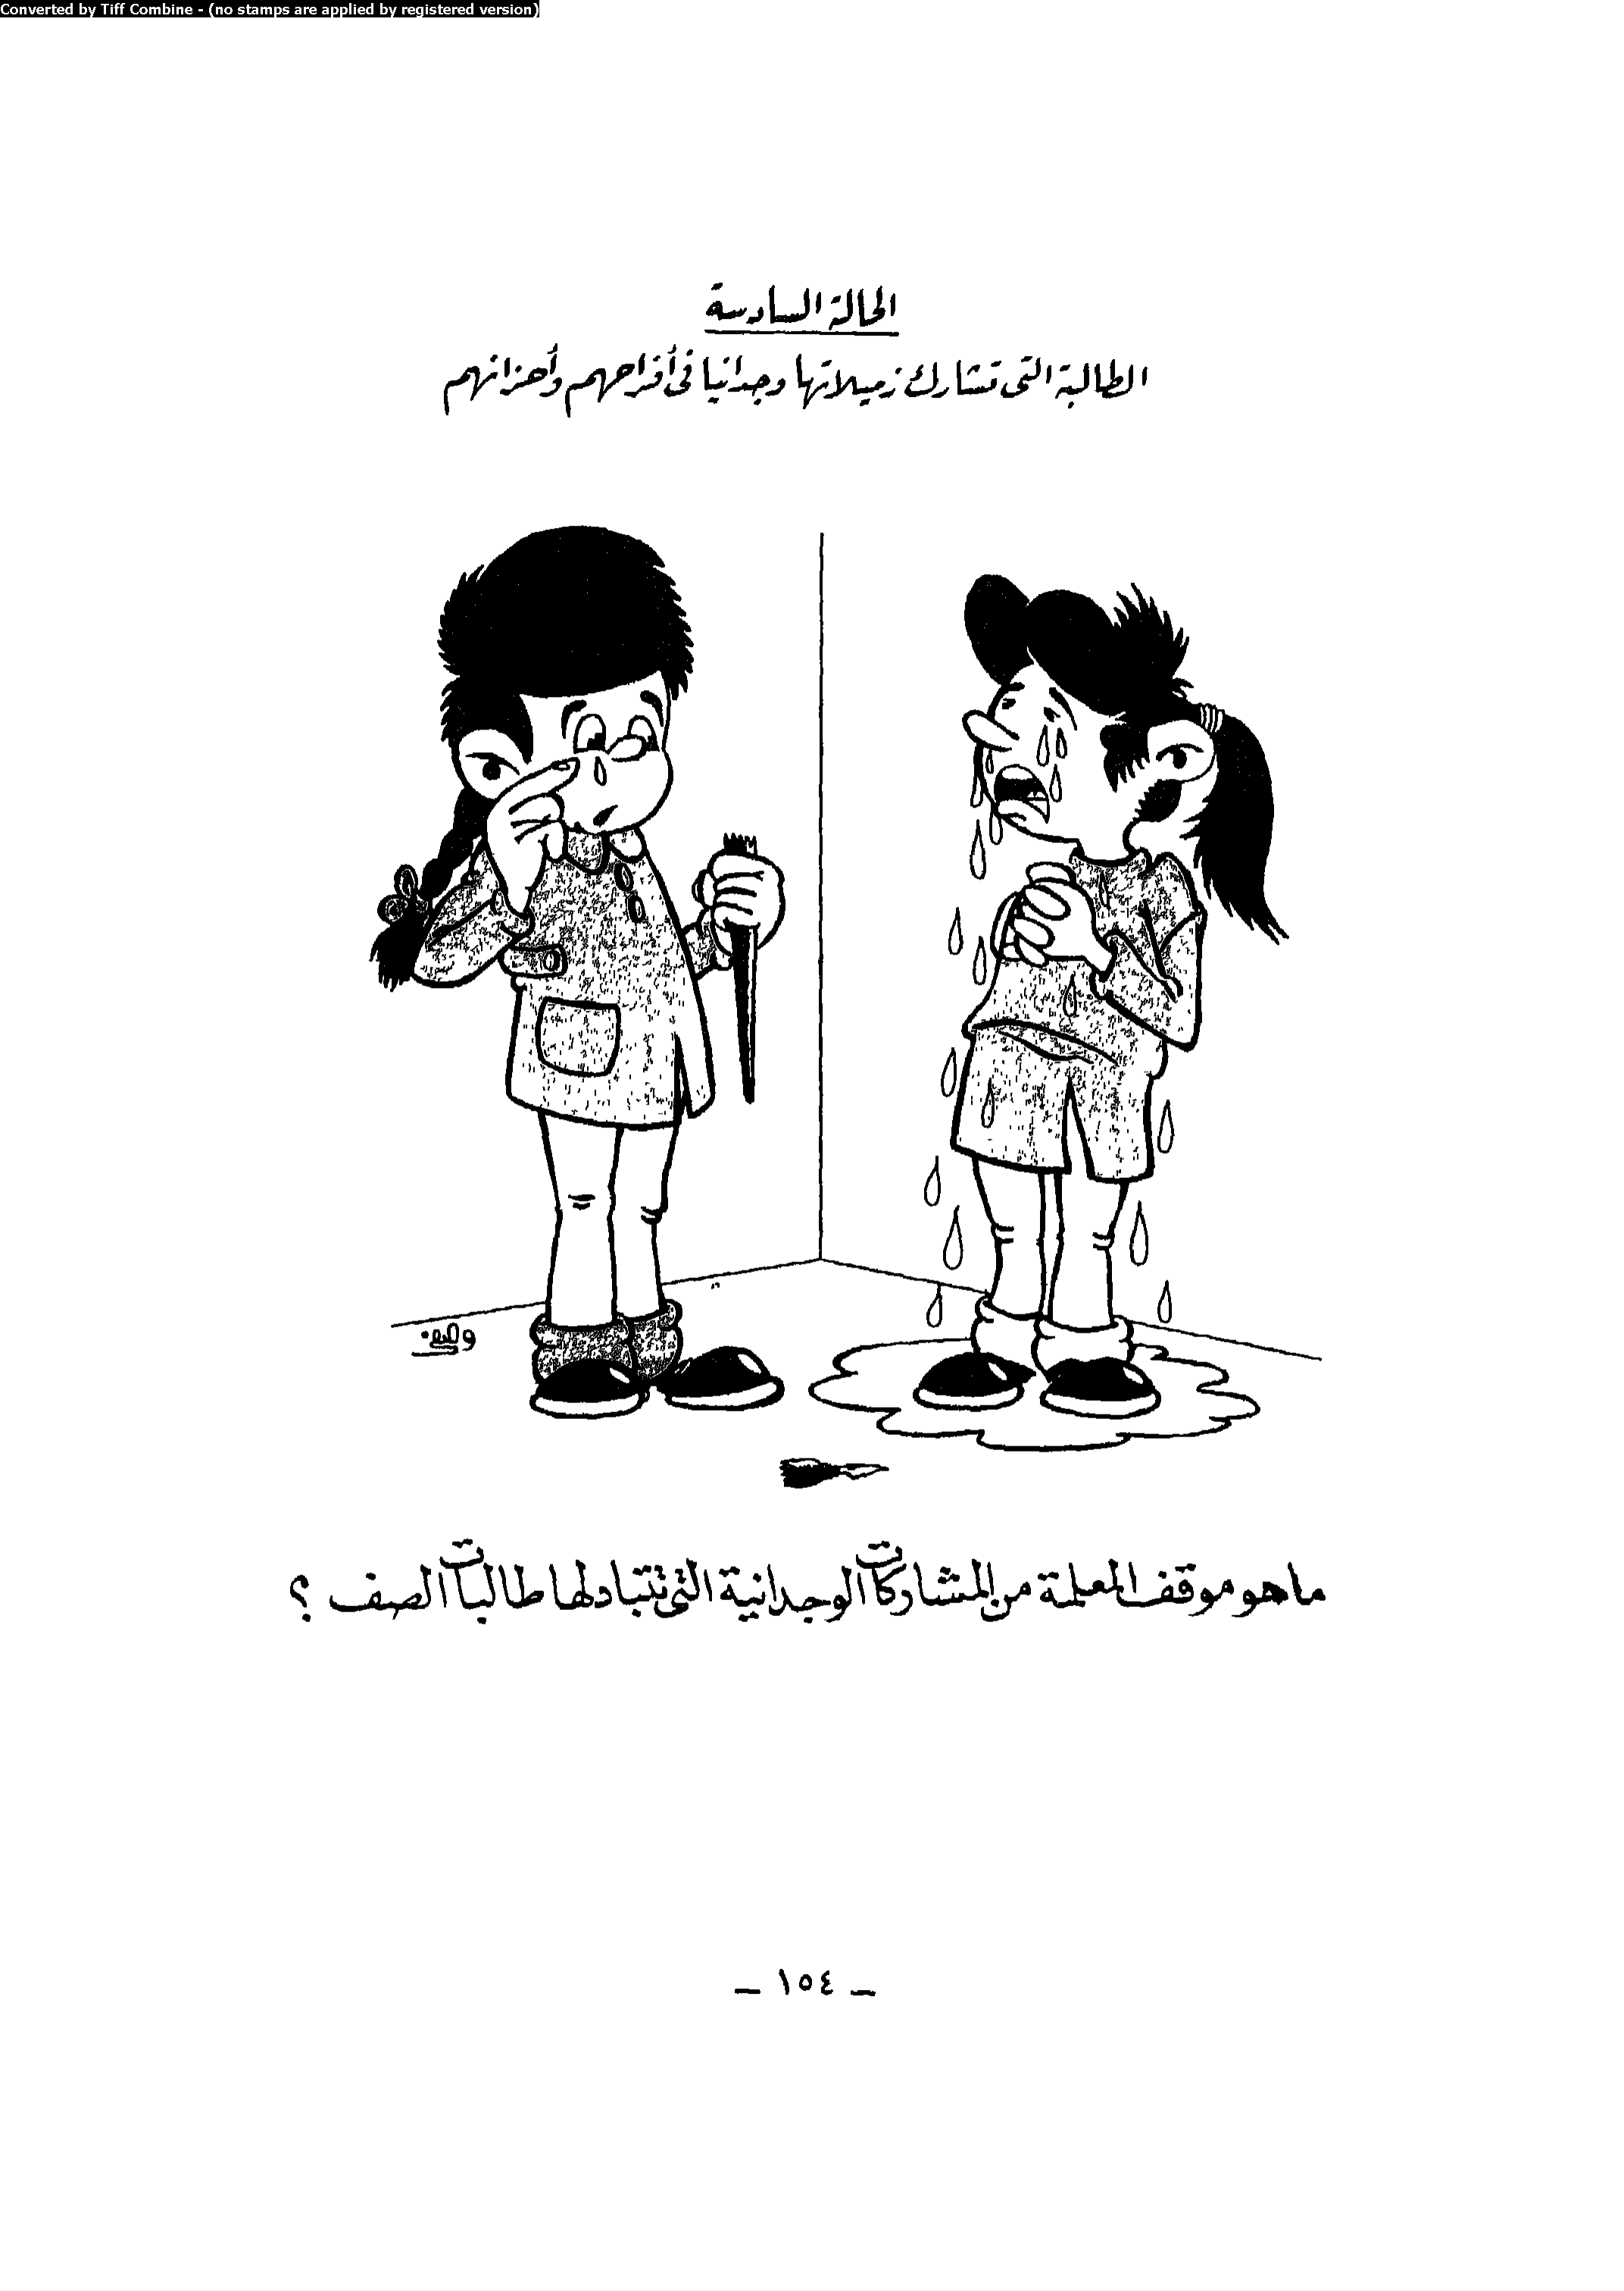 Converted by Tiff Combine - (no stamps are applied by registered version)
الحالة السادسة
الطالبة التى تشارك زميلاتها وجدانيا فى أفراحهم وأحزانهم
ما هو موقف المعلمة من المشاركات الوجدانية التى تتبادلها طالبات الصف ؟
ـ ١٥٤ ـ